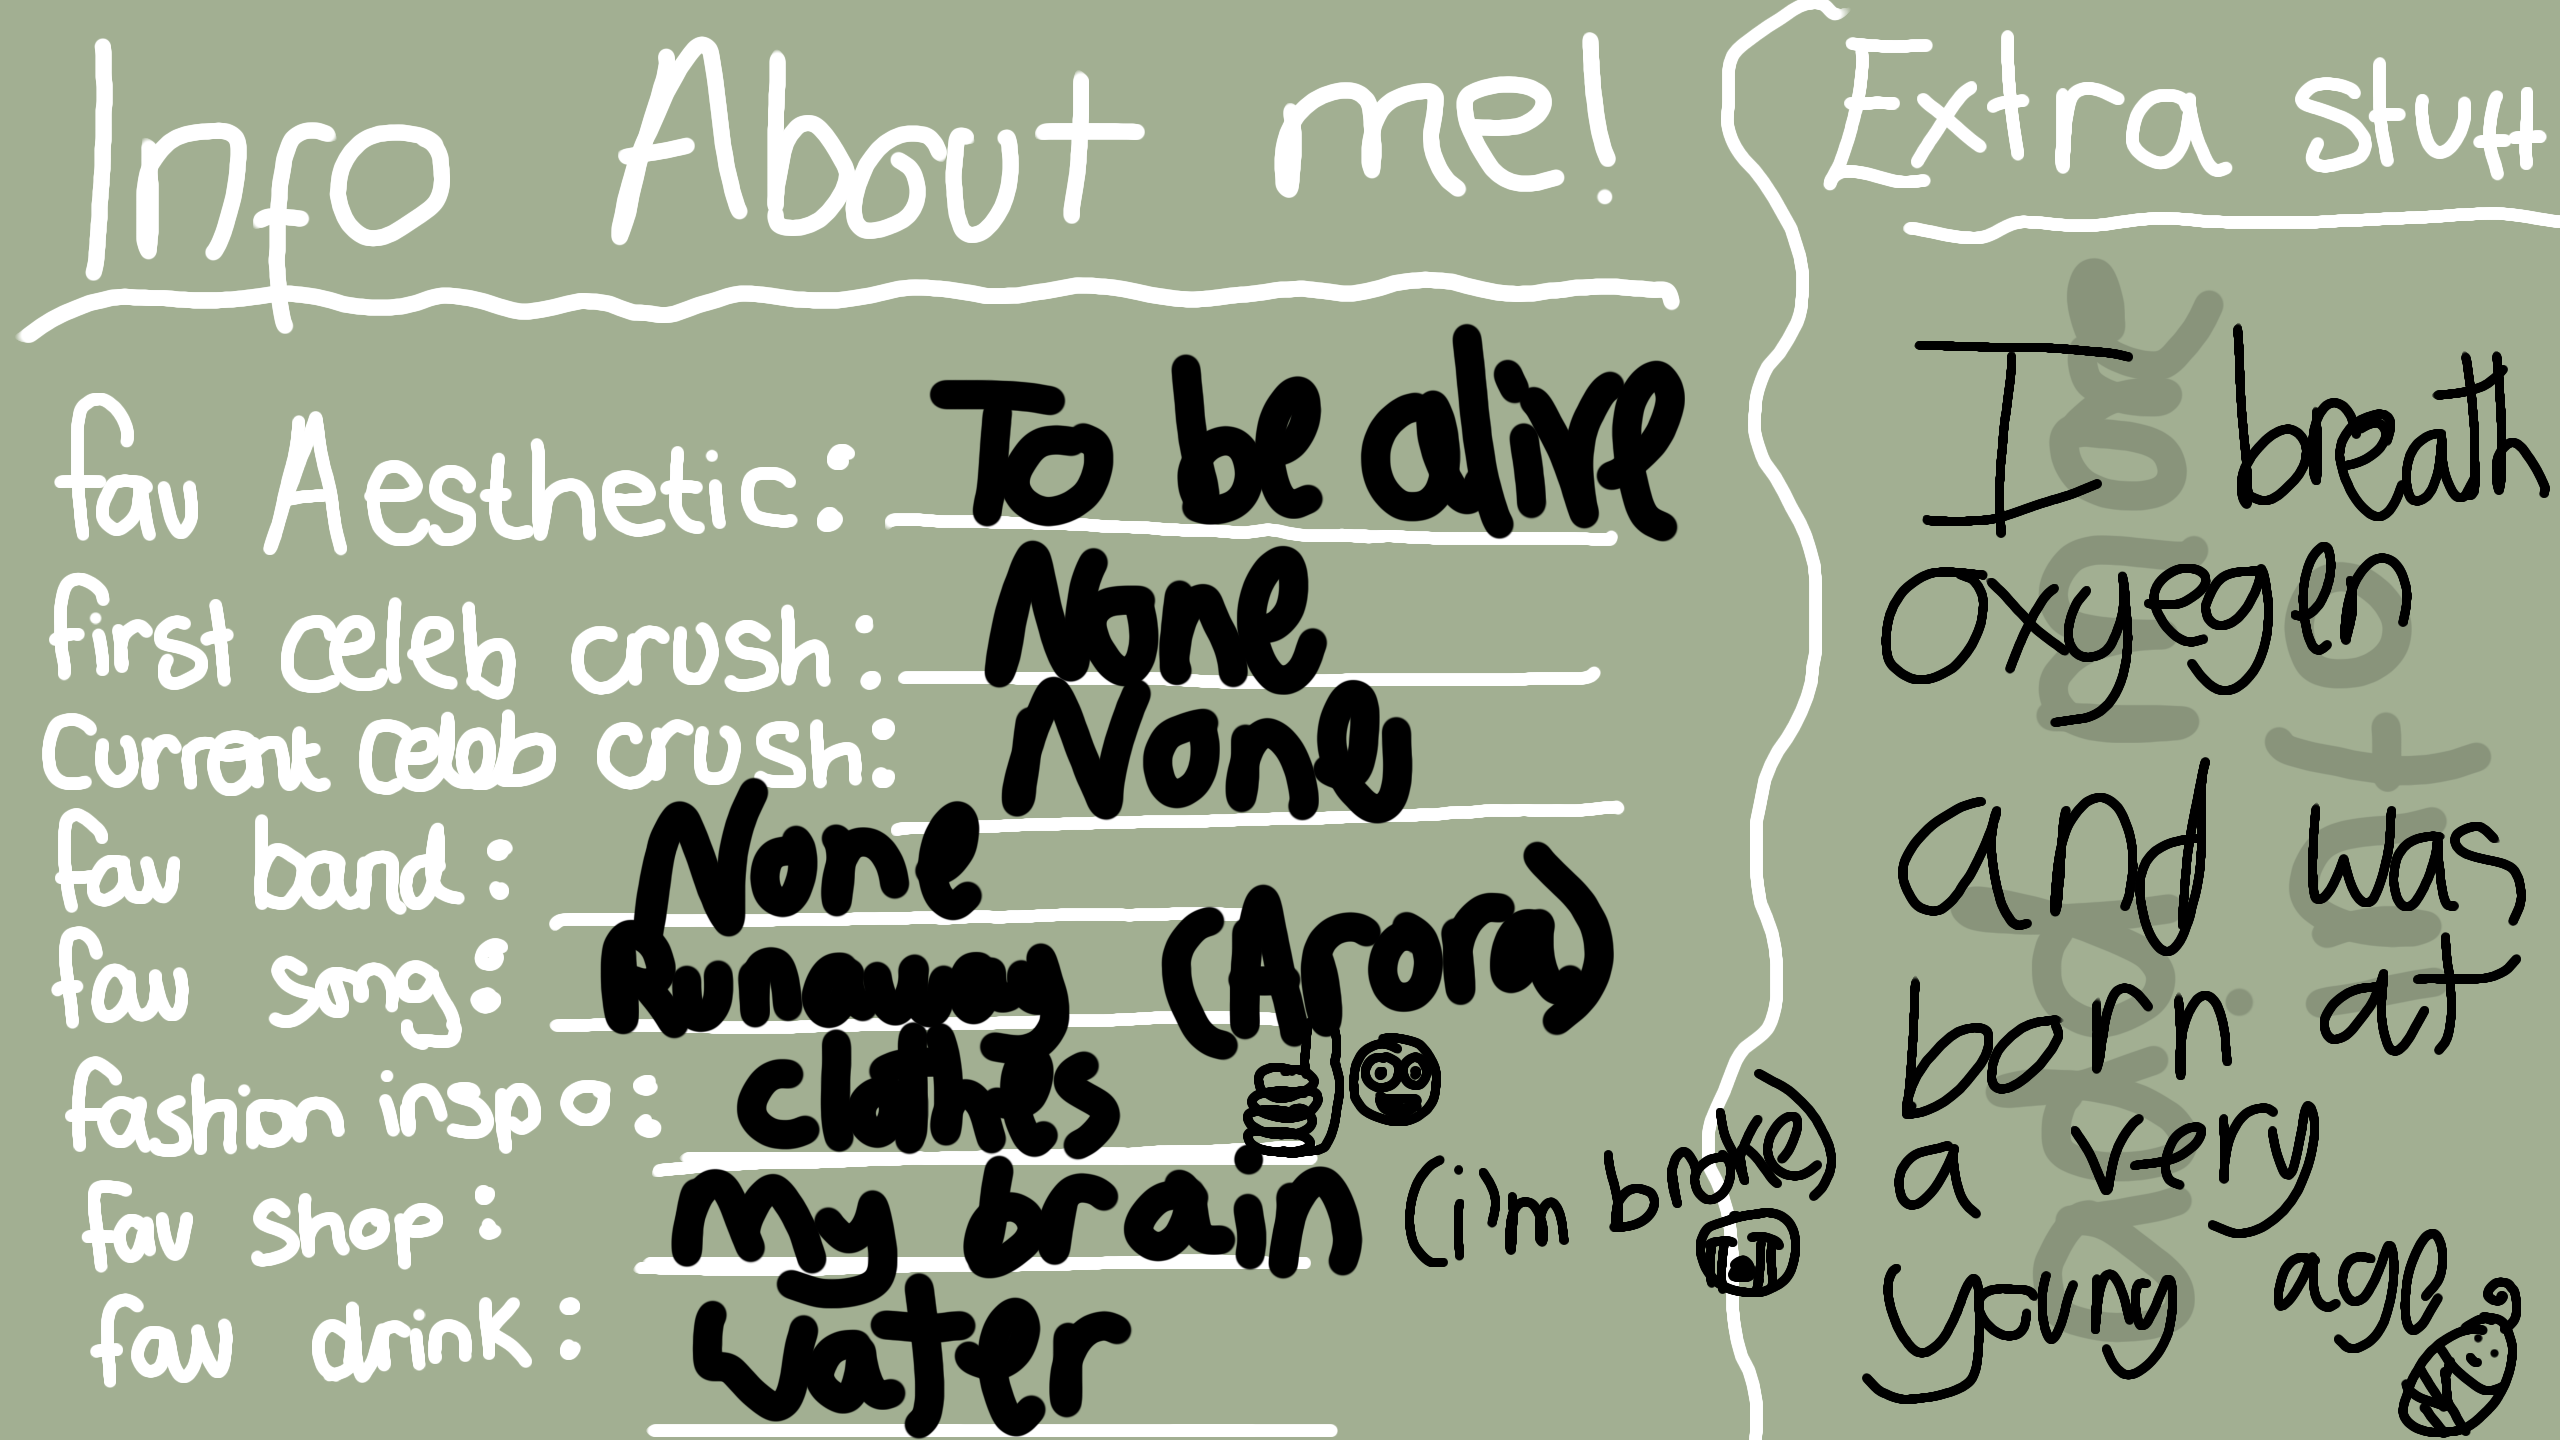 Info About me!
fav Aesthetic: To be alive
first celeb crush: None
Current celeb crush: None
fav band: None
fav song: Runaway (Arora)
fashion inspo: clothes
fav shop: my brain (i'm broke)
fav drink: water
Extra stuff
I breath
oxyegen
and was
born at
a very
young age